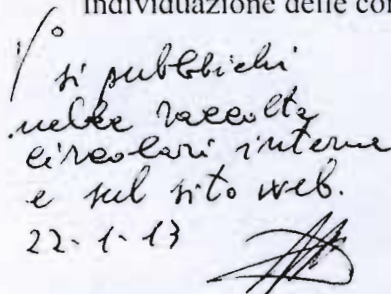 individuazione delle con
V°
si pubblichi
nella raccolta
circolari interne
e sul sito web.
22-1-13